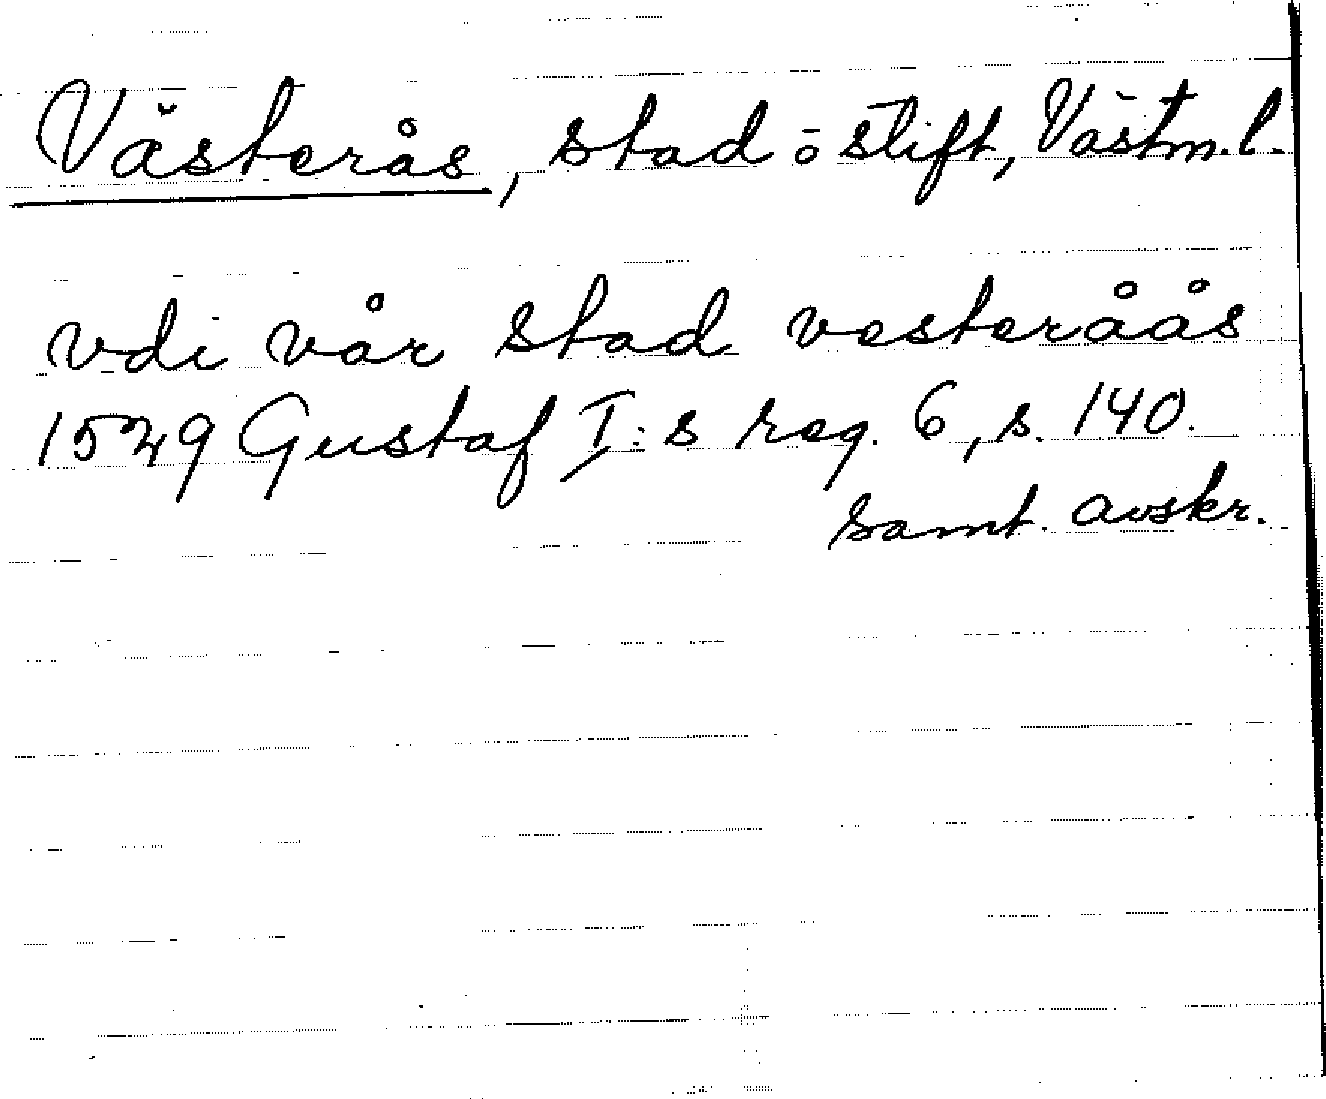 Västerås, stad o stift, Västm. l.
vdi vår stad vesteråås
1529 Gustaf I:s reg. 6, s. 140.
samt. avskr.